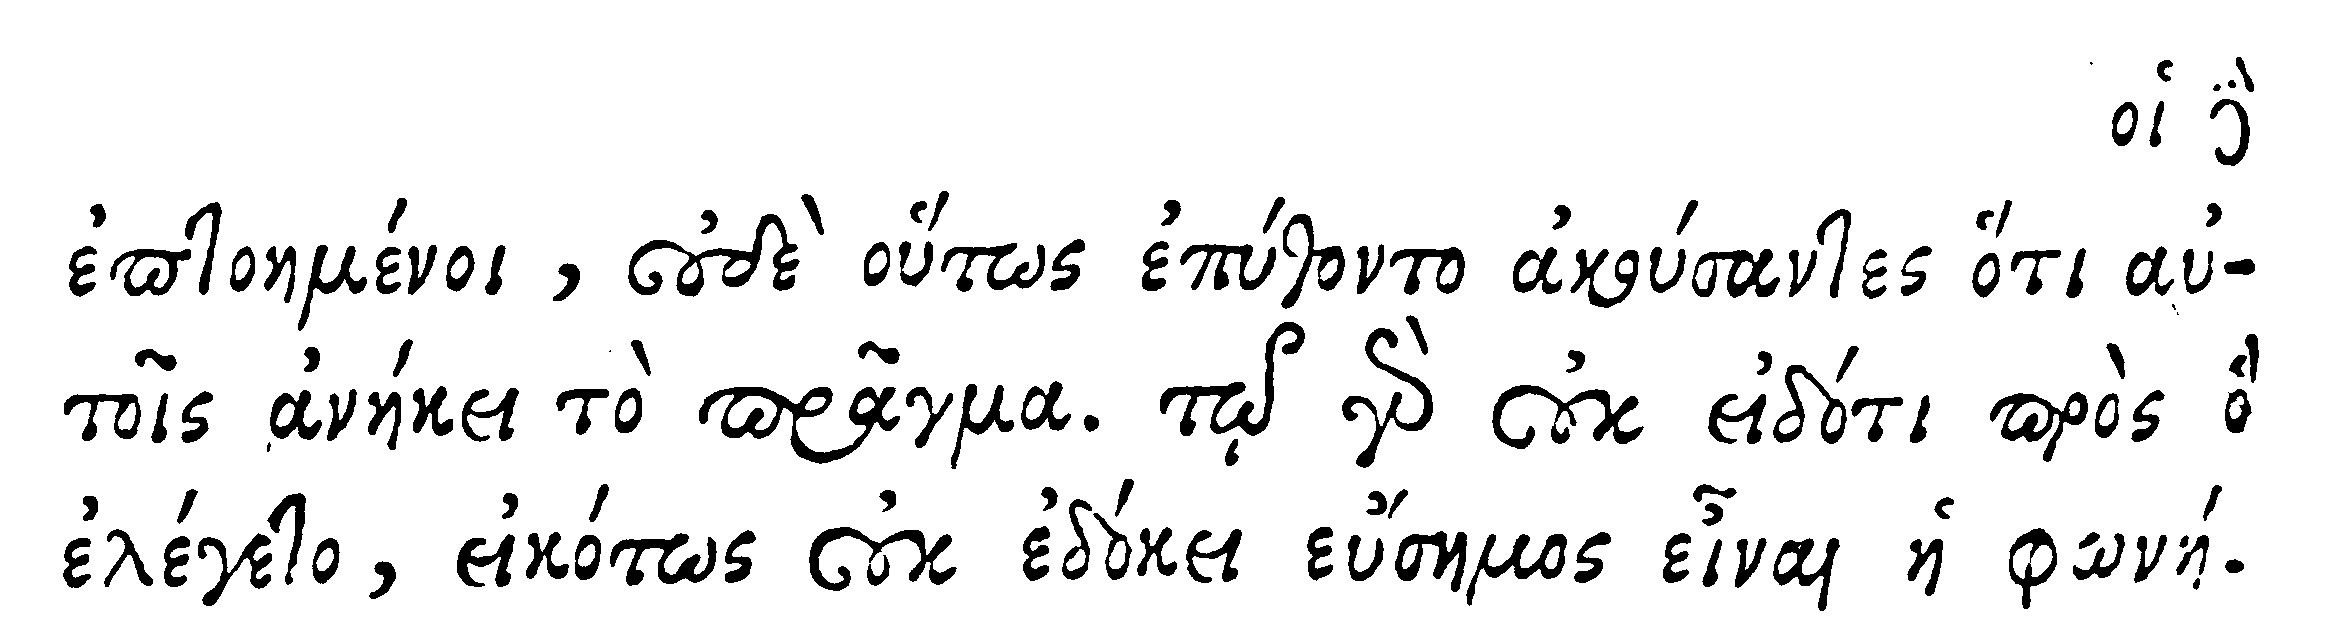 οἱ δὲ
ἐπτοημένοι, οὐδὲ οὕτως ἐπύθοντο ἀκούσαντες ὅτι αὐ-
τοῖς ἀνήκει τὸ πρᾶγμα. τῷ γὰρ οὐκ εἰδότι πρὸς ὃ
ἐλέγετο, εἰκότως οὐκ ἐδόκει εὔσημος εἶναι ἡ φωνή.